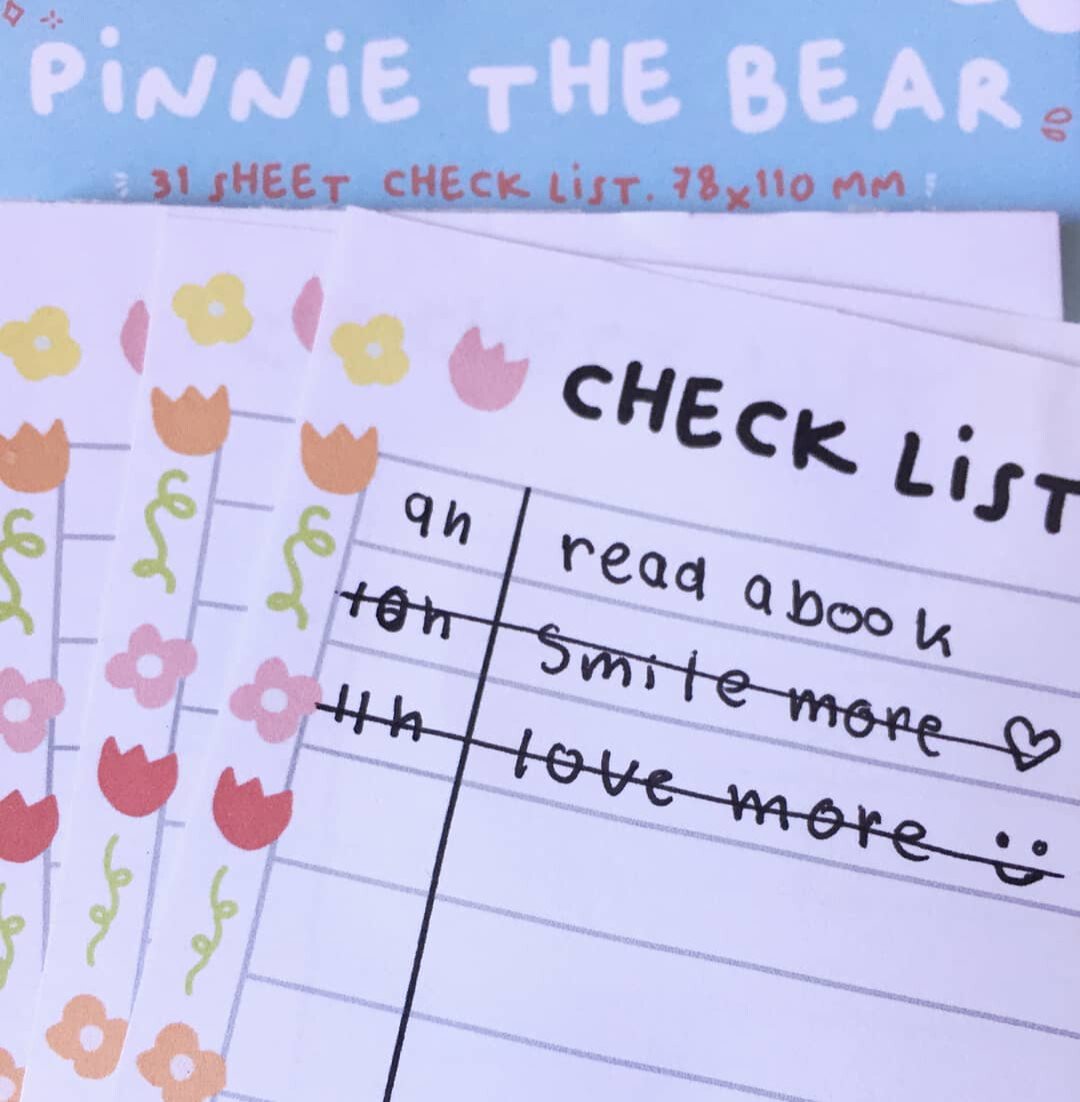 PiNNiE THE BEAR
31 SHEET CHECK LiST. 78x110 MM
CHECK LiST
9h read a book
10h Smile more ♡
11h love more